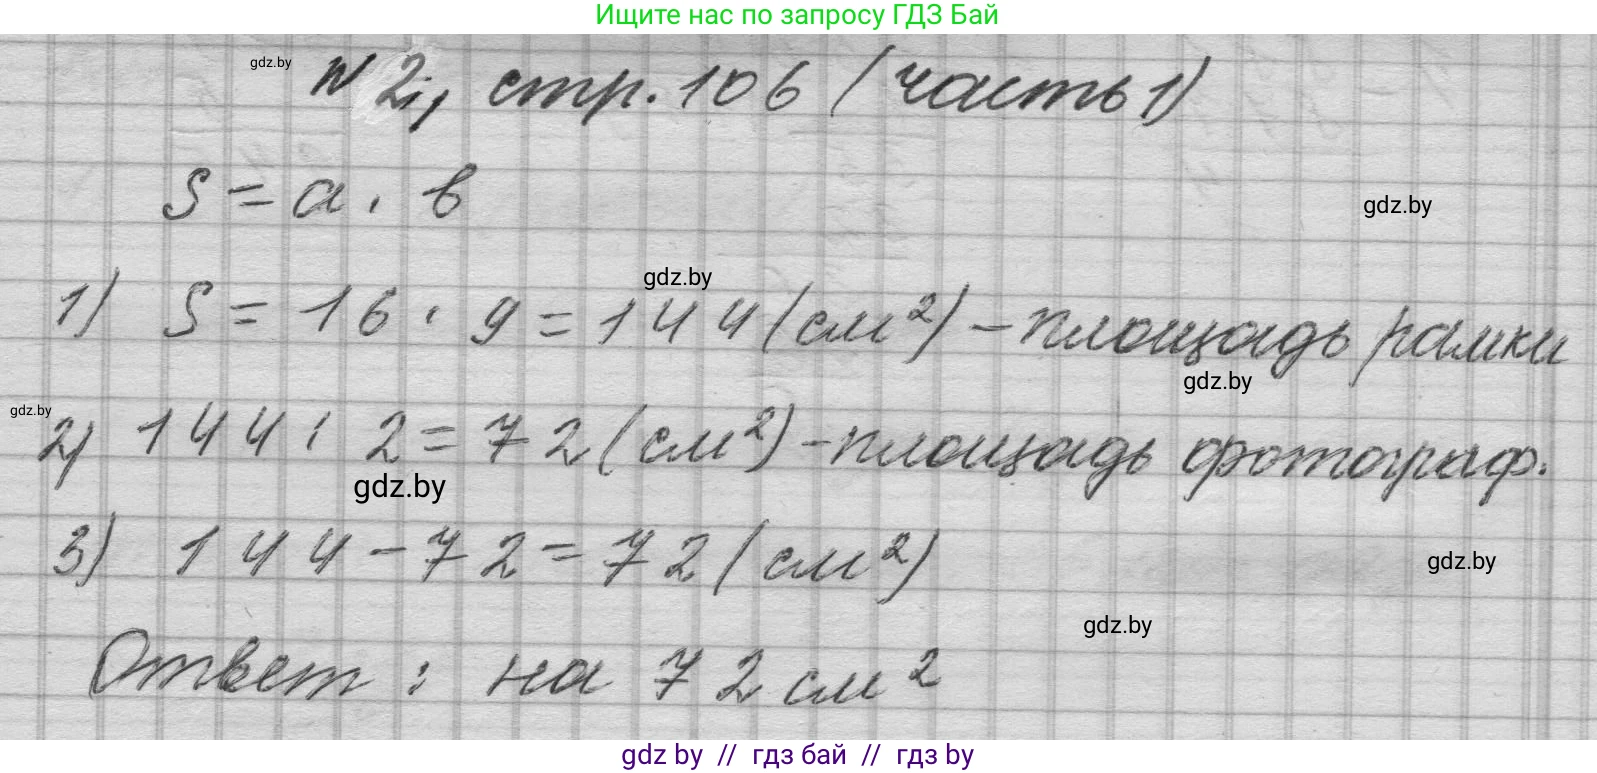 Ищите нас по запросу ГДЗ Бай
gdz.by
№ 2, стр. 106 (часть 1)
S = a · в
gdz.by
gdz.by
1) S = 16 · 9 = 144 (см²) – площадь рамки
gdz.by
gdz.by
2) 144 : 2 = 72 (см²) – площадь фотограф.
gdz.by
3) 144 – 72 = 72 (см²)
gdz.by
gdz.by
Ответ : на 72 см²
gdz by // гдз бай // гдз by